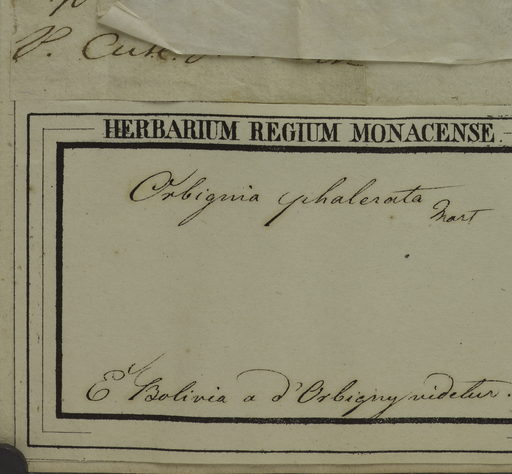 HERBARIUM REGIUM MONACENSE.
Orbignia phalerata
Mart
E Bolivia a d'Orbigny videtur.